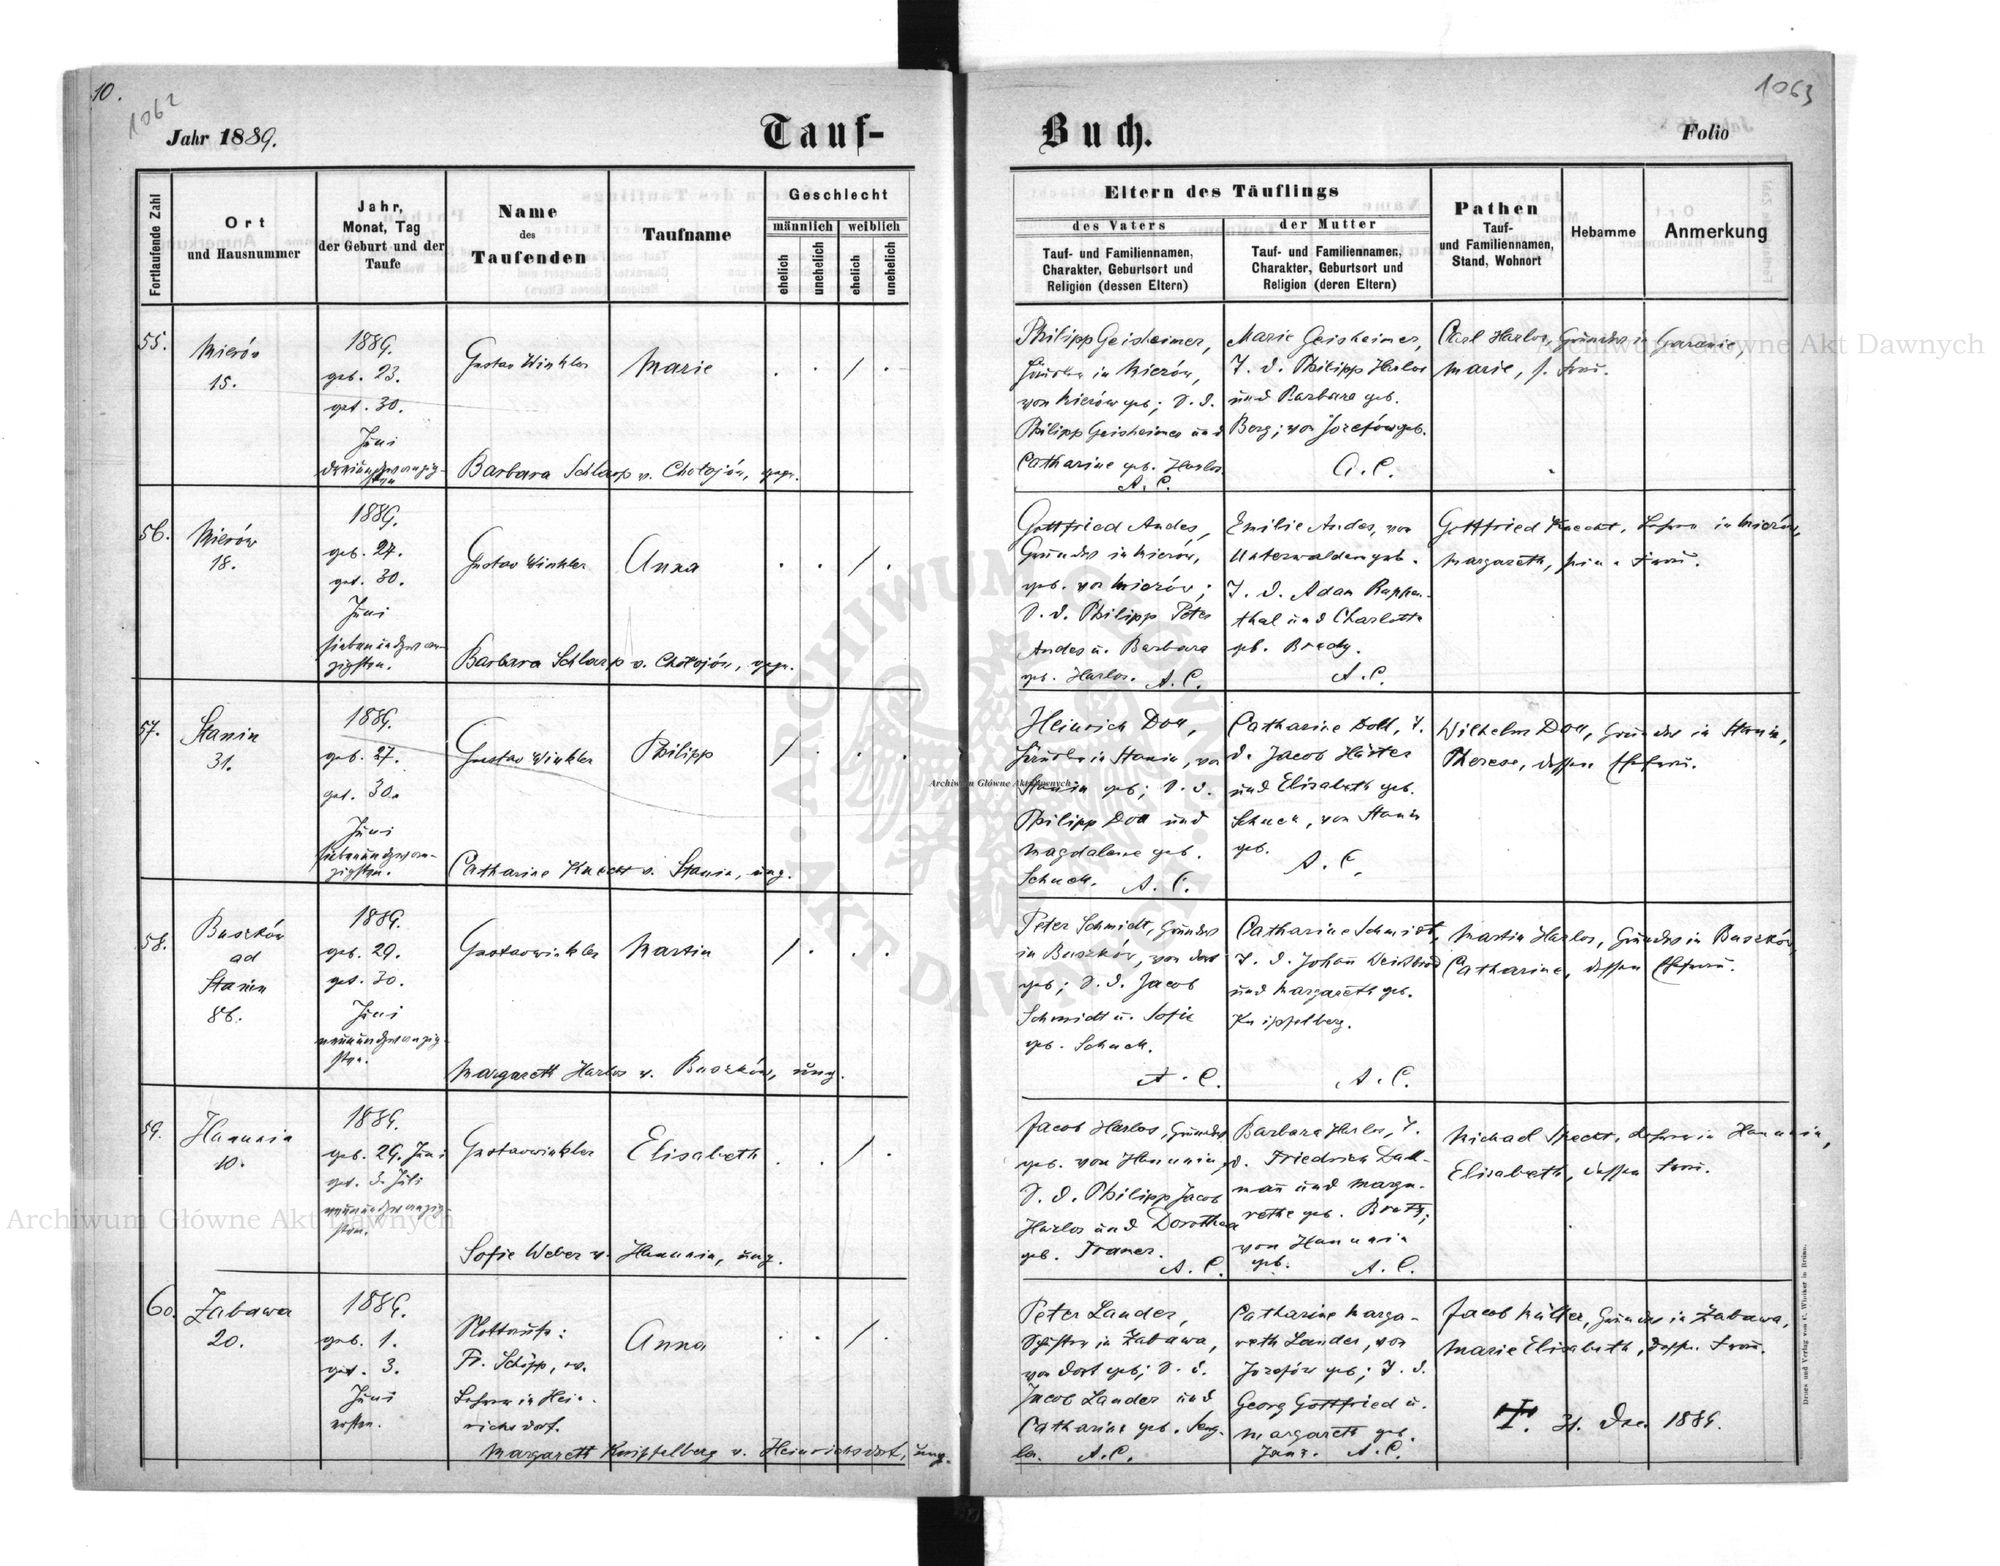 10.
1062
Jahr 1889.
Tauf-
Fortlaufende Zahl
Ort
und Hausnummer
Jahr,
Monat, Tag
der Geburt und der
Taufe
Name
des
Taufenden
Taufname
Geschlecht
männlich
weiblich
ehelich
unehelich
ehelich
unehelich
55.
Mierów
15.
1889.
geb. 23.
get. 30.
Juni
dreiundzwanzig-
sten
Gustav Winkler
Marie
Barbara Schlarp v. Chołojów, gepr.
56.
Mierów
18.
1889.
geb. 27.
get. 30.
Juni
siebenundzwan-
zigsten.
Gustav Winkler
Anna
Barbara Schlarp v. Chołojów, gepr.
57.
Stanin
31.
1889.
geb. 27.
get. 30.
Juni
siebenundzwan-
zigsten.
Gustav Winkler
Philipp
Catharine Knecht v. Stanin, ung.
58.
Buszków
ad
Stanin
86.
1889.
geb. 29.
get. 30.
Juni
neunundzwanzig-
sten.
Gustav Winkler
Martin
Margareth Harlos v. Buszków, ung.
59.
Hanunin
10.
1889.
geb. 29. Juni
get. 3. Juli
neunundzwanzig-
sten.
Gustav Winkler
Elisabeth
Sofie Weber v. Hanunin, ung.
60.
Zabawa
20.
1889.
geb. 1.
get. 3.
Juni
ersten.
Nottaufe:
Fr. Schöpp, ev.
Lehrer in Hein-
richsdorf.
Anna
Margareth Knipfelberg v. Heinrichsdorf, ung.
1063
Buch.
Folio
Eltern des Täuflings
des Vaters
der Mutter
Tauf- und Familiennamen,
Charakter, Geburtsort und
Religion (dessen Eltern)
Tauf- und Familiennamen,
Charakter, Geburtsort und
Religion (deren Eltern)
Pathen
Tauf-
und Familiennamen,
Stand, Wohnort
Hebamme
Anmerkung
Philipp Geisheimer,
Grundw. in Mierów,
von Mierów geb; S. d.
Philipp Geisheimer und
Catharine geb. Harlos.
A. C.
Marie Geisheimer,
T. d. Philipp Harlos
und Barbara geb.
Berg; von Józefów geb.
A. C.
Carl Harlos, Grundw. in
Marie, s. Frau.
Gottfried Andes,
Grundw. in Mierów,
geb. von Mierów;
S. d. Philipp Peter
Andes u. Barbara
geb. Harlos. A. C.
Emilie Andes, von
Unterwalden geb.
T. d. Adam Rappen-
thal und Charlotte
geb. Bredy.
A. C.
Gottfried Knecht, Lehrer in Mierów,
Margareth, seine Frau.
Heinrich Doll,
Grundw. in Stanin, von
Stanin geb; S. d.
Philipp Doll und
Magdalene geb.
Schuck. A. C.
Catharine Doll, T.
d. Jacob Häuter
und Elisabeth geb.
Schuck, von Stanin
geb.
A. C.
Wilhelm Doll, Grundw. in Stanin,
Therese, dessen Ehefrau.
Peter Schmidt, Grundw.
in Buszków, von dort
geb; S. d. Jacob
Schmidt u. Sofie
geb. Schuck.
A. C.
Catharine Schmidt,
T. d. Johann Weißbrod
und Margareth geb.
Knipfelberg.
A. C.
Martin Harlos, Grundw. in Buszków,
Catharine, dessen Ehefrau.
Jacob Harlos, Grundw.
geb. von Hanunin;
S. d. Philipp Jacob
Harlos und Dorothea
geb. Framer.
A. C.
Barbara Harlos, T.
d. Friedrich Dall-
mann und Marga-
rethe geb. Bretz;
von Hanunin
geb. A. C.
Michael Specht, Lehrer in Hanunin,
Elisabeth, dessen Frau.
Peter Lander,
Schuster in Zabawa,
von dort geb; S. d.
Jacob Lander und
Catharine geb. Seng-
ler. A. C.
Catharine Marga-
reth Lander, von
Józefów geb; T. d.
Georg Gottfried u.
Margareth geb.
Janz. A. C.
Jacob Müller, Grundw. in Zabawa,
Marie Elisabeth, dess. Frau.
†. 31. Dec. 1889.
Druck und Verlag von C. Winiker in Brünn.
Archiwum Główne Akt Dawnych
Archiwum Główne Akt Dawnych
Archiwum Główne Akt Dawnych
ARCHIWUM GŁÓWNE AKT DAWNYCH